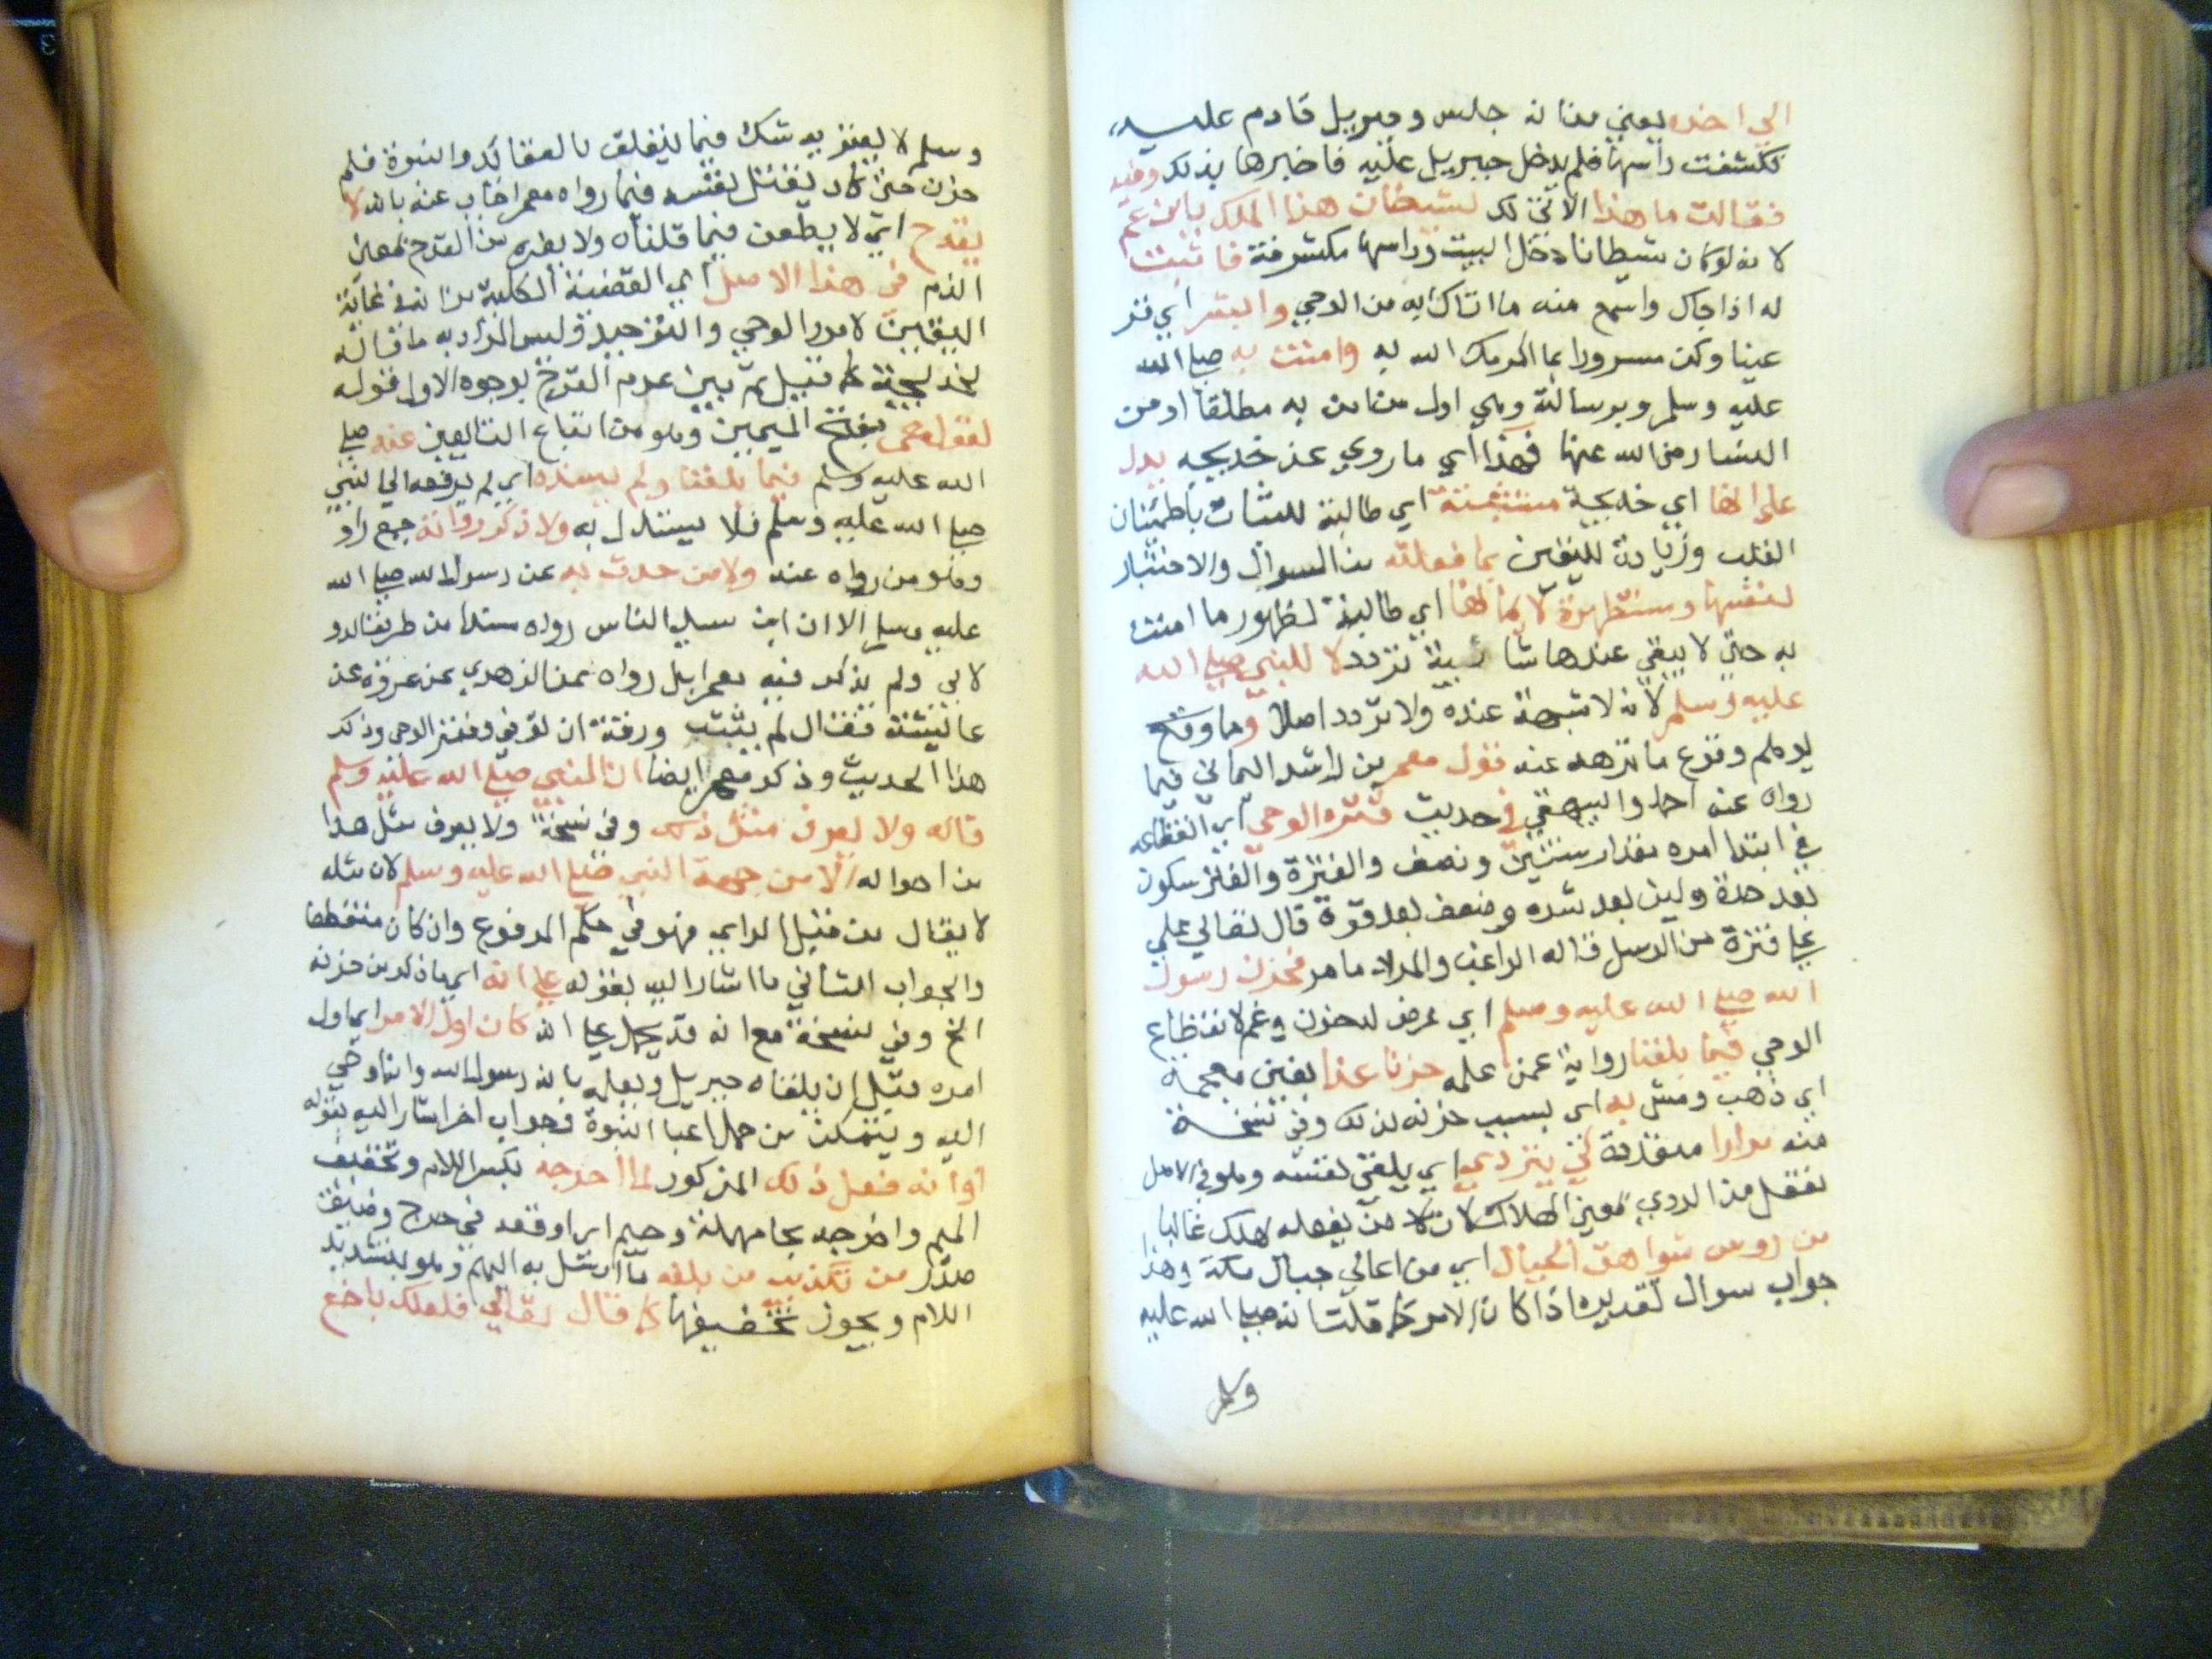 الي اخذه يعني من انه جلس وجبريل قادم عليه
فكشفت راسها فلم يدخل جبريل عليه فاخبرها بذلك وفيه
فقالت ما هذا الاتي لك لشيطان هذا الملك يا ابن عم
لانه لو كان شيطانا دخل البيت وراسها مكشوفة فاثبت
له اذا جاك واسمع منه ما اتاك به من الوحي وابشر اي قر
عينا وكن مسرورا بما اكرمك الله به وامنت به صلى الله
عليه وسلم وبرسالته وهي اول من امن به مطلقا او من
النسا رضى الله عنها فهذا اي ما روي عن خديجه يدل
على انها اي خديجة مستثبتة اي طالبة للثبات باطمئنان
القلب وزيادة لليقين بما فعلته من السوال والاختبار
لنفسها ومستظهرة لايمانها اي طالبة لظهور ما امنت
به حتى لا يبقي عندها شائبة تردد لا للنبي صلى الله
عليه وسلم لانه لا شبهة عنده ولا تردد اصلا وما وقع
يوهم وقوع ما نزهه عنه قول معمر بن راشد اليماني فيما
رواه عنه احمد والبيهقي في حديث فترة الوحي اي انقطاعه
في ابتدا امره مقدار سنتين ونصف والفترة والفتر سكون
بعد حدة ولين بعد شده وضعف بعد قوة قال تعالى على
على فترة من الرسل قاله الراغب والمراد ما مر فحزن رسول
الله صلى الله عليه وسلم اي عرض له حزن وغم لانقطاع
الوحي فيما بلغنا رواية عمن علمه حزنا غدا بغين معجمة
اي ذهب ومشى به اي بسبب حزنه لذلك وفي نسخة
منه مرارا متفرقة كي يتردي اي يلقي نفسه وهو في الاصل
تفعل من الردي بمعنى الهلاك لان من يفعله هلك غالبا
من روس شواهق الجبال اي من اعالي جبال مكة وهذا
جواب سوال تقديره اذا كان الامر كما قلت انه صلى الله عليه
وسلم
وسلم لا يعتريه شك فيما يتعلق بالعقائد والنبوة فلم
حزن حتى كاد يقتل نفسه فيما رواه معمر اجاب عنه بانه لا
يقدح اي لا يطعن فيما قلناه ولا يضره من القدح بمعنى
الذم في هذا الاصل اي القضية الكلية من انه في غاية
اليقين لامور الوحي والتوحيد وليس المراد به ما قاله
لخديجة كما قيل ثم بين عدم القدح بوجوه الاول قوله
لقول معمر بفتح الميمين وهو من اتباع التابعين عنه صلى
الله عليه وسلم فيما بلغنا ولم يسنده اي لم يرفعه الي النبي
صلى الله عليه وسلم فلا يستدل به ولا ذكر رواته جمع راو
وهو من رواه عنه ولا من حدث به عن رسول الله صلى الله
عليه وسلم الا ان ابن سيد الناس رواه مسندا من طريق الدو
لابي ولم يذكر فيه معمرا بل رواه عن الزهري عن عروة عن
عائشة فقال لم يثبت ورقة ان توفي وفتر الوحى وذكر
هذا الحديث وذكر معمر ايضا ان النبي صلى الله عليه وسلم
قاله ولا يعرف مثل ذلك وفي نسخة ولا يعرف مثل هذا
من احواله الا من جهة النبي صلى الله عليه وسلم لان مثله
لا يقال من قبل الراي فهو في حكم المرفوع وان كان منقطعا
والجواب الثاني ما اشار اليه بقوله على انه اي ما ذكر من حزنه
الخ وفي نسخة مع انه قد يحمل على انه كان اول الامر اي اول
امره قبل ان يلقاه جبريل ويعلمه بانه رسول الله وانما وحي
اليه ويتمكن من حمل اعبا النبوة وجواب اخر اشار اليه بقوله
او انه فعل ذلك المذكور لما احرجه بكسر اللام وتخفيف
الميم واحرجه بحا مهملة وجيم اي اوقعه في حرج وضيق
صدر من تكذيب من بلغه ما ارسل به اليهم وهو بتشديد
اللام ويجوز تخفيفها كما قال تعالي فلعلك باخع